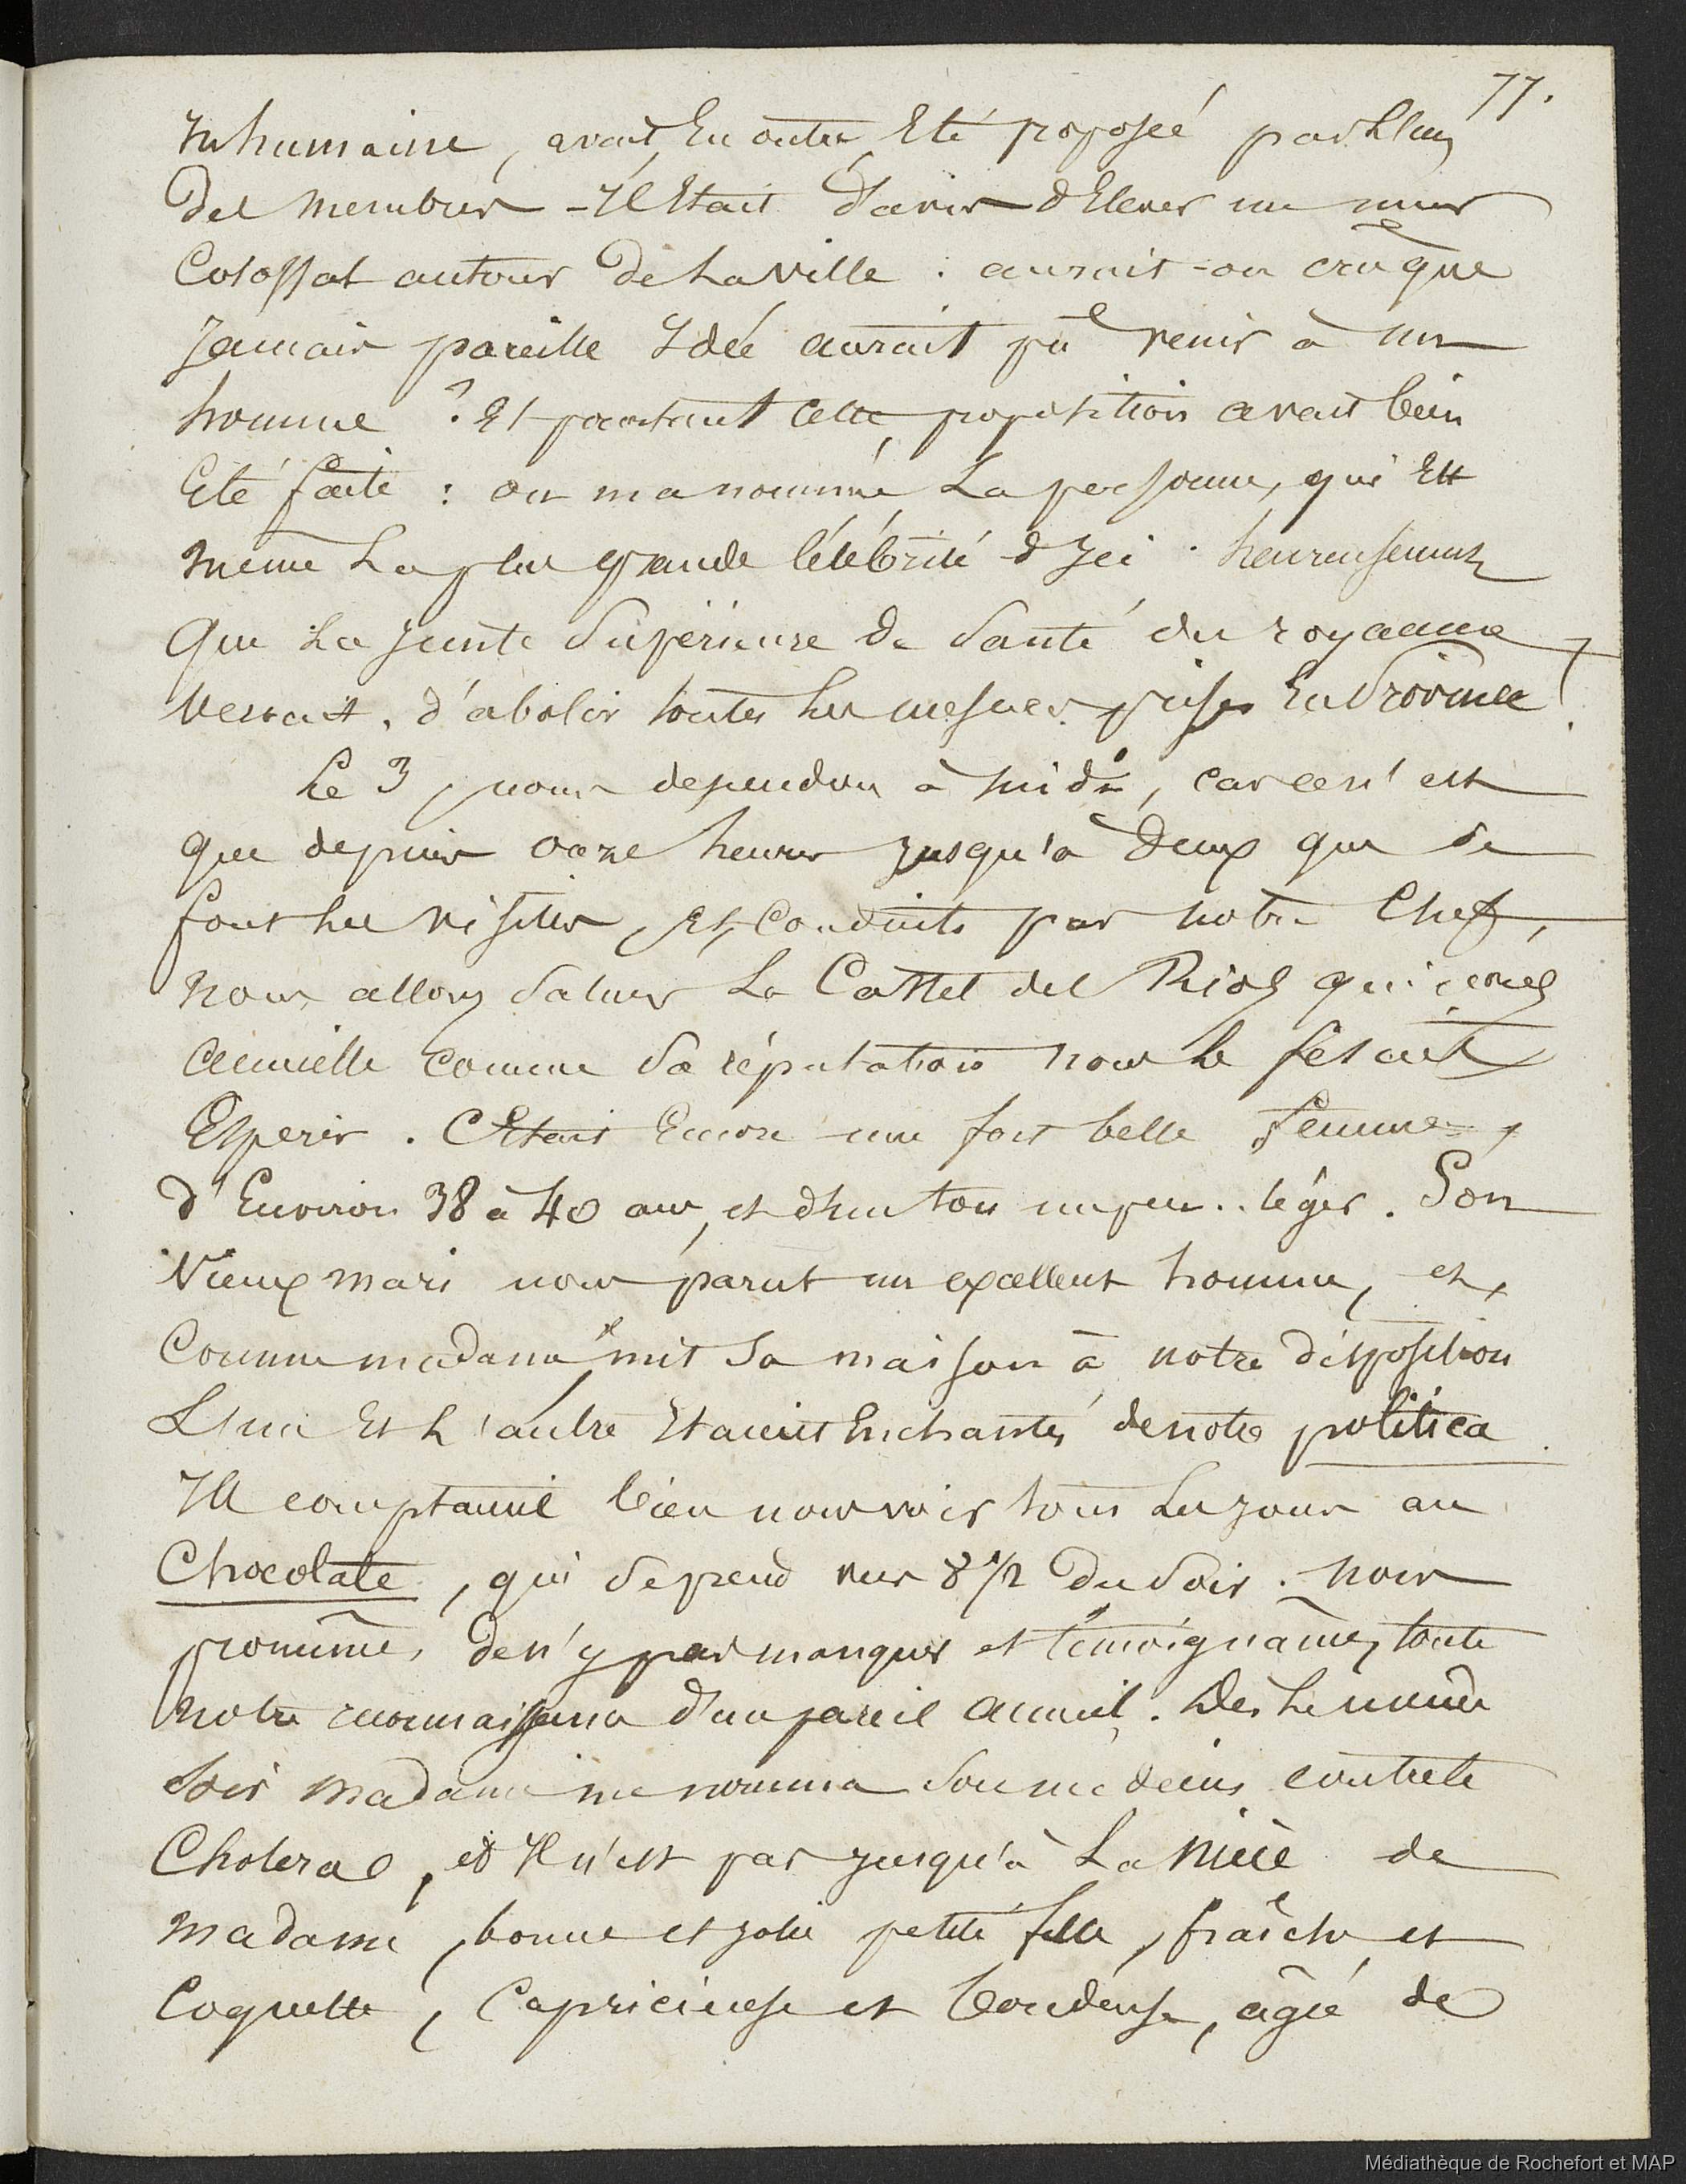 77.
Inhumaine, avait, En outre, Eté proposée par L'un
Des membres - Il Etait d'avis d'Elever un mur
Colossal autour De La ville : aurait-on crû que
Jamais pareille Idée aurait pû venir à un
homme ? Et pourtant cette proposition avait bien
Eté faite : on m'a nommé La personne, qui Est
même La plus grande Célébrité d'Ici. heureusement
Que La Junte Supérieure de Santé du royaume,
venait, d'abolir toutes Les mesures prises En Province !
Le 3, nous descendons à midi, car ce n'est
que depuis onze heures Jusqu'à Deux que se
font Les visites, Et, Conduits par notre Chef,
nous allons Saluer La Castel del Rios qui nous
accueille comme Sa réputation nous Le fesait
Espérer. C'Etait Encore une fort belle femme,
d'Environ 38 à 40 ans, et d'un ton un peu.. léger. Son
Vieux mari nous parut un excellent homme, et,
Comme madame, mit Sa maison à notre disposition
L'un Et L'autre Etaient Enchantés de notre politica.
Ils comptaient bien nous voir tous Les jours au
Chocolate, qui Se prend vers 8 1/2 Du Soir. nous
promîmes de n'y pas manquer et témoignâmes, toute
notre reconnaissance d'un pareil accueil. Dès Le même
Soir madame me nomma Son médecin contre Le
Cholera, et Il n'est pas Jusqu'à La nièce de
madame, bonne et Jolie petite fille, fraîche et
Coquette, Capricieuse et boudeuse, âgée de
Médiathèque de Rochefort et MAP